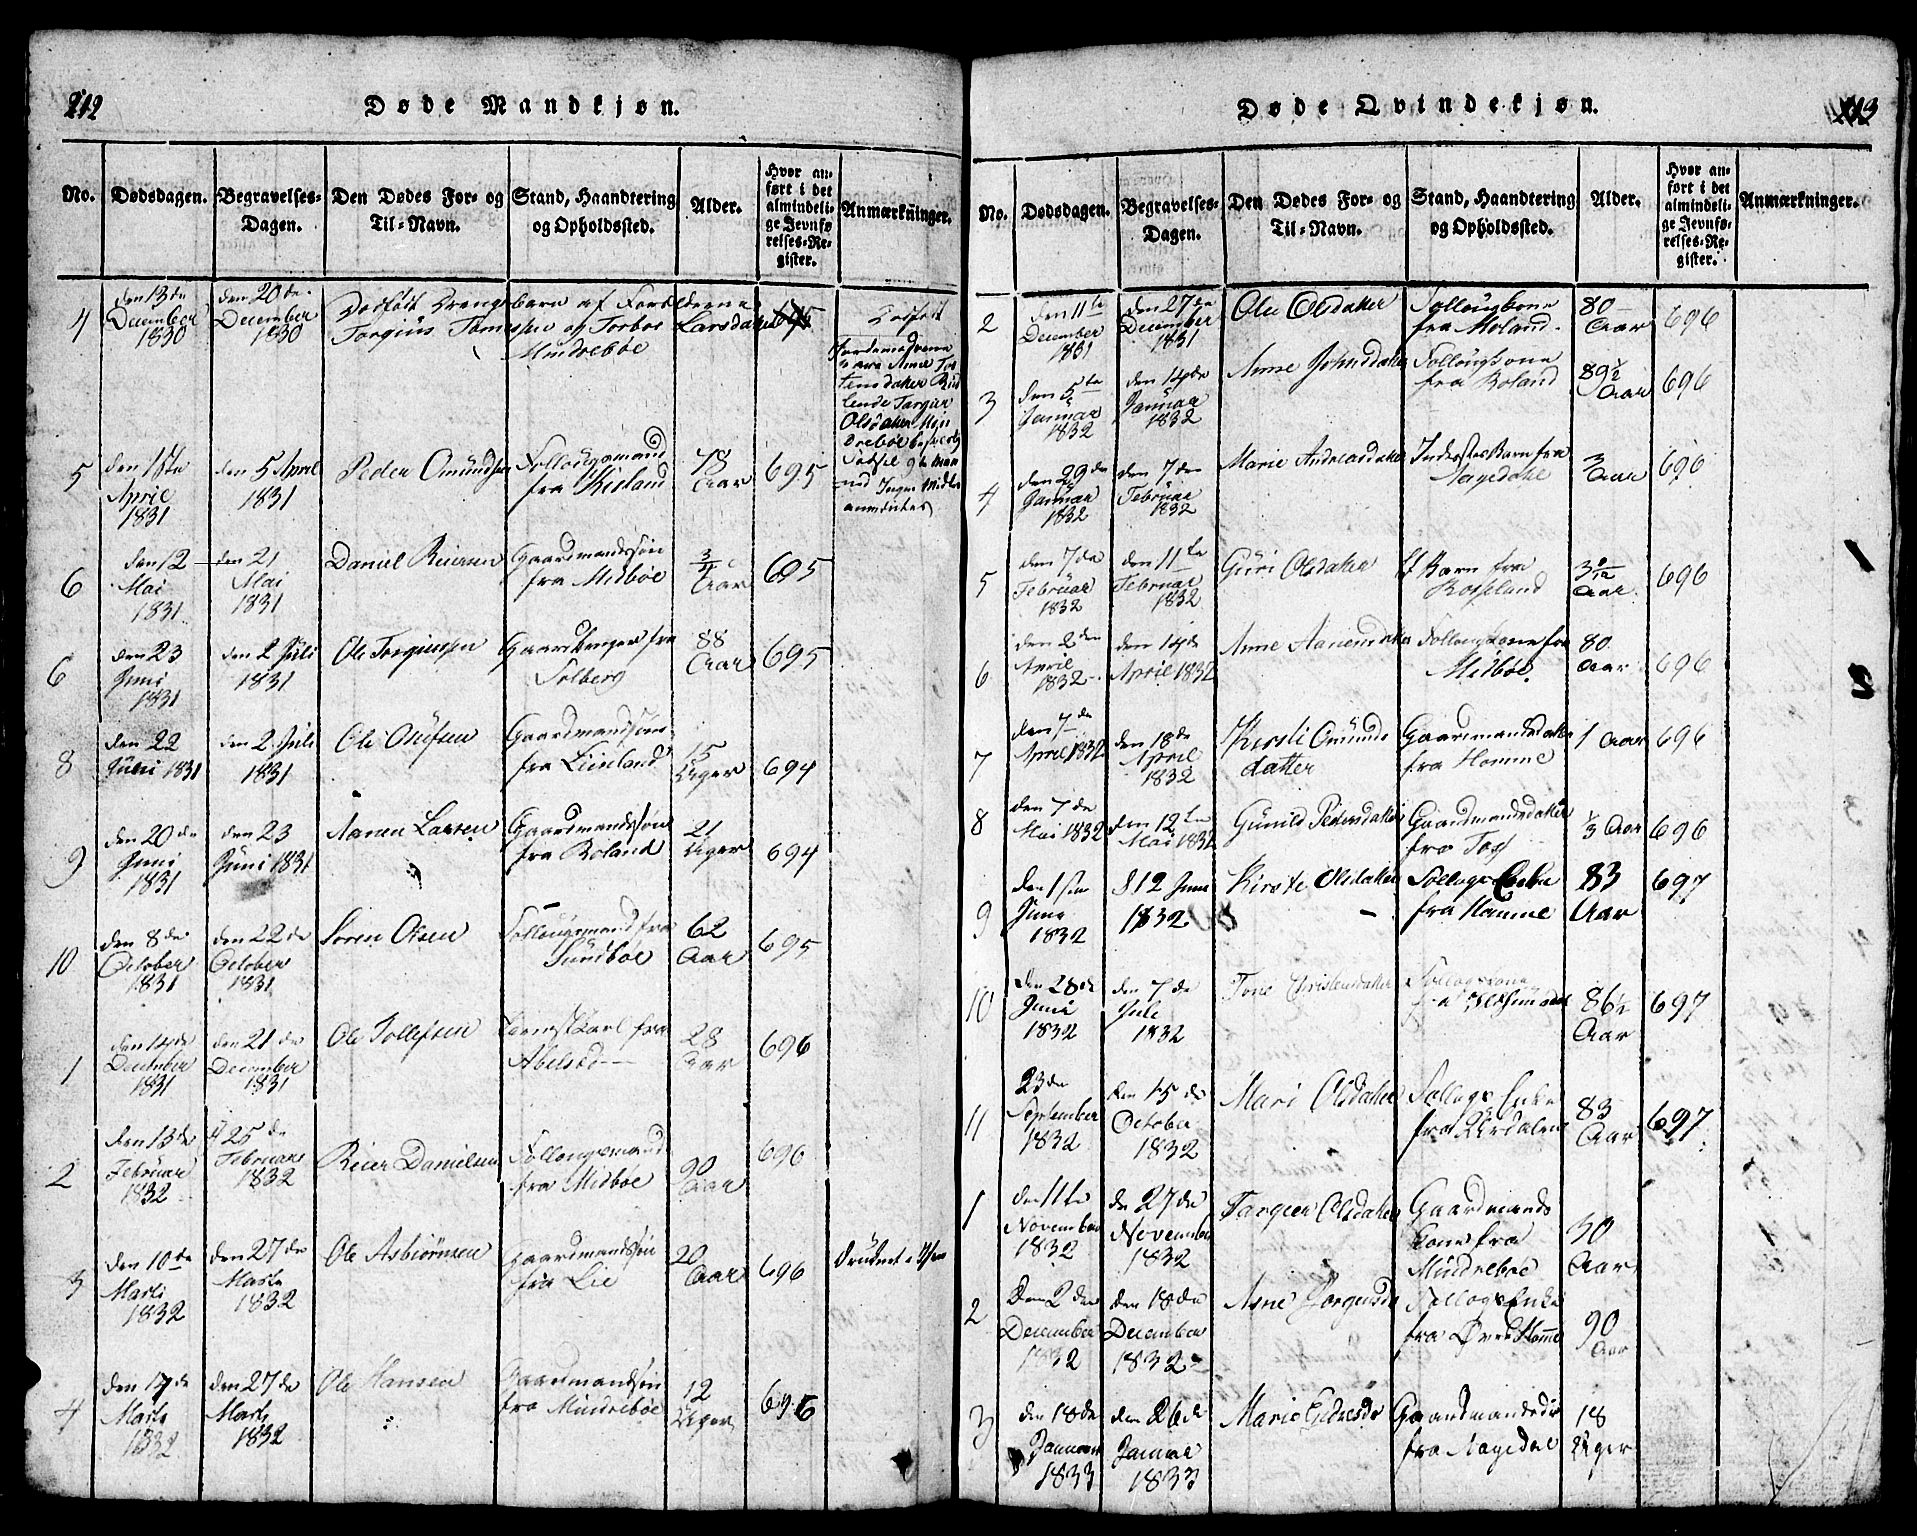 212
Døde Mandkjøn.
No.
Dødsdagen.
Begravelses-
Dagen.
Den Dødes For- og
Til-Navn.
Stand, Haandtering
og Opholdssted.
Alder.
Hvor an-
ført i det
almindeli-
ge Jevnfø-
relses-Re-
gister.
Anmærkninger.
4
den 13de
December
1830
den 20de
December
1830
Dødfødt Drengebarn af Forældrene
Torgius
og Torbor Larsdatter
Mindrebøe
Dødfødt
5
April
1831
den 5 April
1831
Peder Omundsen
Follougsmand
fra
78
Aar
695
6
den 12
Mai
1831
den 21
Mai
1831
Daniel Reiersen
Gaardmandssøn
fra Midbøe
3/4
Aar
695
6
den 23
Juni
1831
den 2 Juli
1831
Ole Torgiussen
fra
Solberg
88
Aar
695
8
den 22
Juni 1831
den 2 Juli
1831
Ole Olufsen
Gaardmandssøn
fra Lienland
15
Uger
694
9
den 20de
Juni
1831
den 23
Juni 1831
Aanen Larsen
Gaardmandssøn
fra Roland
21
Uger
694
10
den 8de
October
1831
den 22de
October
1831
Søren Olsen
Follougsmand fra
Sundbøe
62
Aar
695
1
den 14de
December
1831
den 21de
December
1831
Ole Tollefsen
fra
Abelsted
28
Aar
696
2
den 13de
Februar
1832
25de
Februar
1832
Reier Danielsen
Follougsmand
fra Midbøe
90
Aar
696
3
den 10de
Marti
1832
den 27de
Marti
1832
Ole Asbiørnsen
Gaardmandssøn
fra Lie
20
Aar
696
4
den 17de
Marti
1832
den 27de
Marti
1832
Ole Hansen
Gaardmandssøn
fra Mindrebøe
12
Uger
696
Døde Qvindekjøn.
213
No.
Dødsdagen.
Begravelses-
Dagen.
Den Dødes For- og
Til-Navn.
Stand, Haandtering
og Opholdssted.
Alder.
Hvor an-
ført i det
almindeli-
ge Jevnfø-
relses-Re-
gister.
Anmærkninger.
2
den 11te
December
1831
den 27de
December
1831
Olsdatter
Follougkone
fra Moland
80
Aar
696
3
den 5te
Januar
1832
den 14de
Januar
1832
Anne Johnsdatter
Follougkone
fra Roland
89 1/2
Aar
696
4
den 29de
Januar
1832
den 7de
Februar
1832
Marie Andreasdatter
Barn fra
Nagedale
3
Aar
696
5
den 7de
Februar
1832
den 11te
Februar
1832
Guri Olsdatter
Barn fra
Rosseland
Aar
696
6
den 2den
April
1832
den 14de
April 1832
Anne Aanensdatter
Follougkone fra
Midbøe
80
Aar
696
7
den 7de
April 1832
den 18de
April
1832
Kirsti Omunds
datter
Gaardmandsdatter
fra Homme
1 Aar
696
8
den 7de
Mai 1832
den 12te
Mai 1832
Gunild Pedersdatter
Gaardmandsdatter
fra
1/3 Aar
696
9
Juni
1832
d 12 Juni
1832
Kirste Olsdatter
Follogs Enke
fra Homme
83
Aar
697
10
den 28de
Juni
1832
den 7de
Juli
1832
Tone Christensdatter
Follogskone
fra
86 1/2
Aar
697
11
23de
September
1832
den 15de
October
1832
Mari Olsdatter
Follogs Enke
fra
83
Aar
697
1
den 11te
November
1832
de 27de
November
1832
Torgier Olsdatter
Gaardmands
Kone fra
Mindrebøe
30
Aar
2
Den 2den
December
1832
den 18de
December
1832
Asne Jorgensd
Follogs Enke
fra Øvre Homme
90
Aar
3
den 18de
Januar
1833
den 26de
Januar
1833
Marie
Gaardmandsd
fra Nagedal
18
Uger